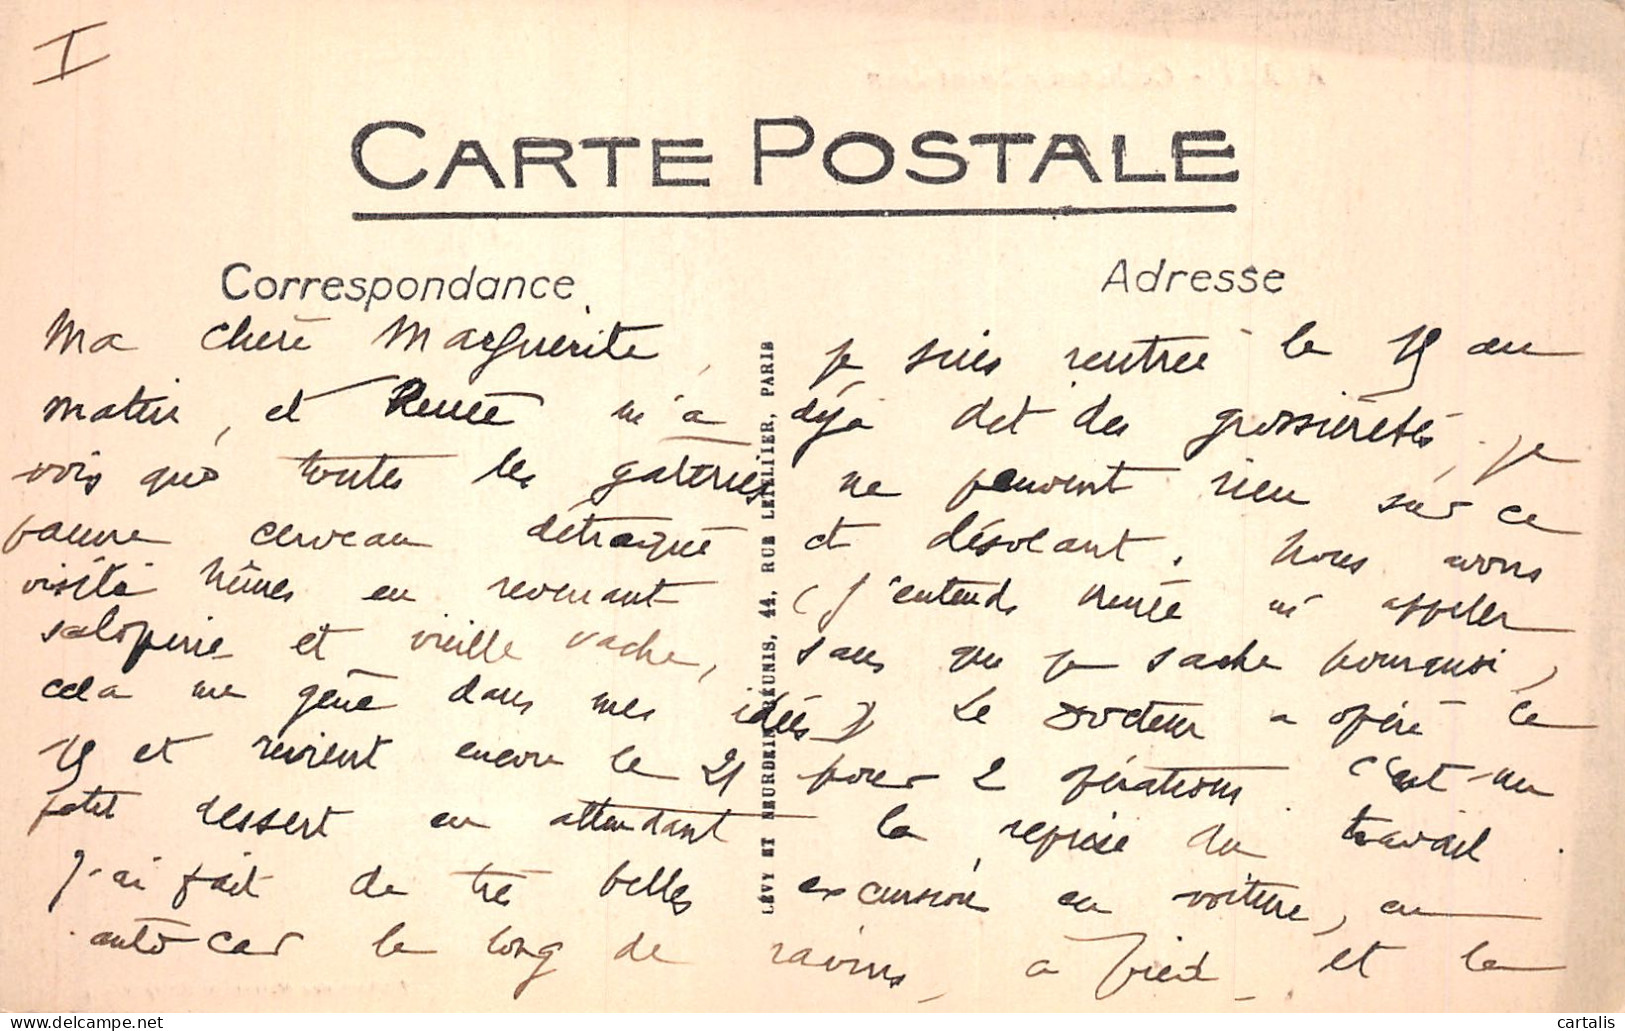 I
CARTE POSTALE
Correspondance
Adresse
Ma chère Marguerite, je suis rentrée le 19 au
matin, et Renée m'a déjà dit des grossièretés, je
vois que toutes les gâteries ne peuvent rien sur ce
pauvre cerveau détraqué et désolant. Nous avons
visité Nîmes en revenant (j'entends Renée m'appeler
saloperie et vieille vache, sans que je sache pourquoi,
cela me gêne dans mes idées) Le Docteur a opéré le
19 et revient encore le 21 pour 2 opérations. C'est un
petit dessert en attendant la reprise du travail.
J'ai fait de très belles excursions en voiture, en
auto-car le long de ravins, à pied, et le
LÉVY ET NEURDEIN RÉUNIS, 44, RUE LETELLIER, PARIS
cartalis